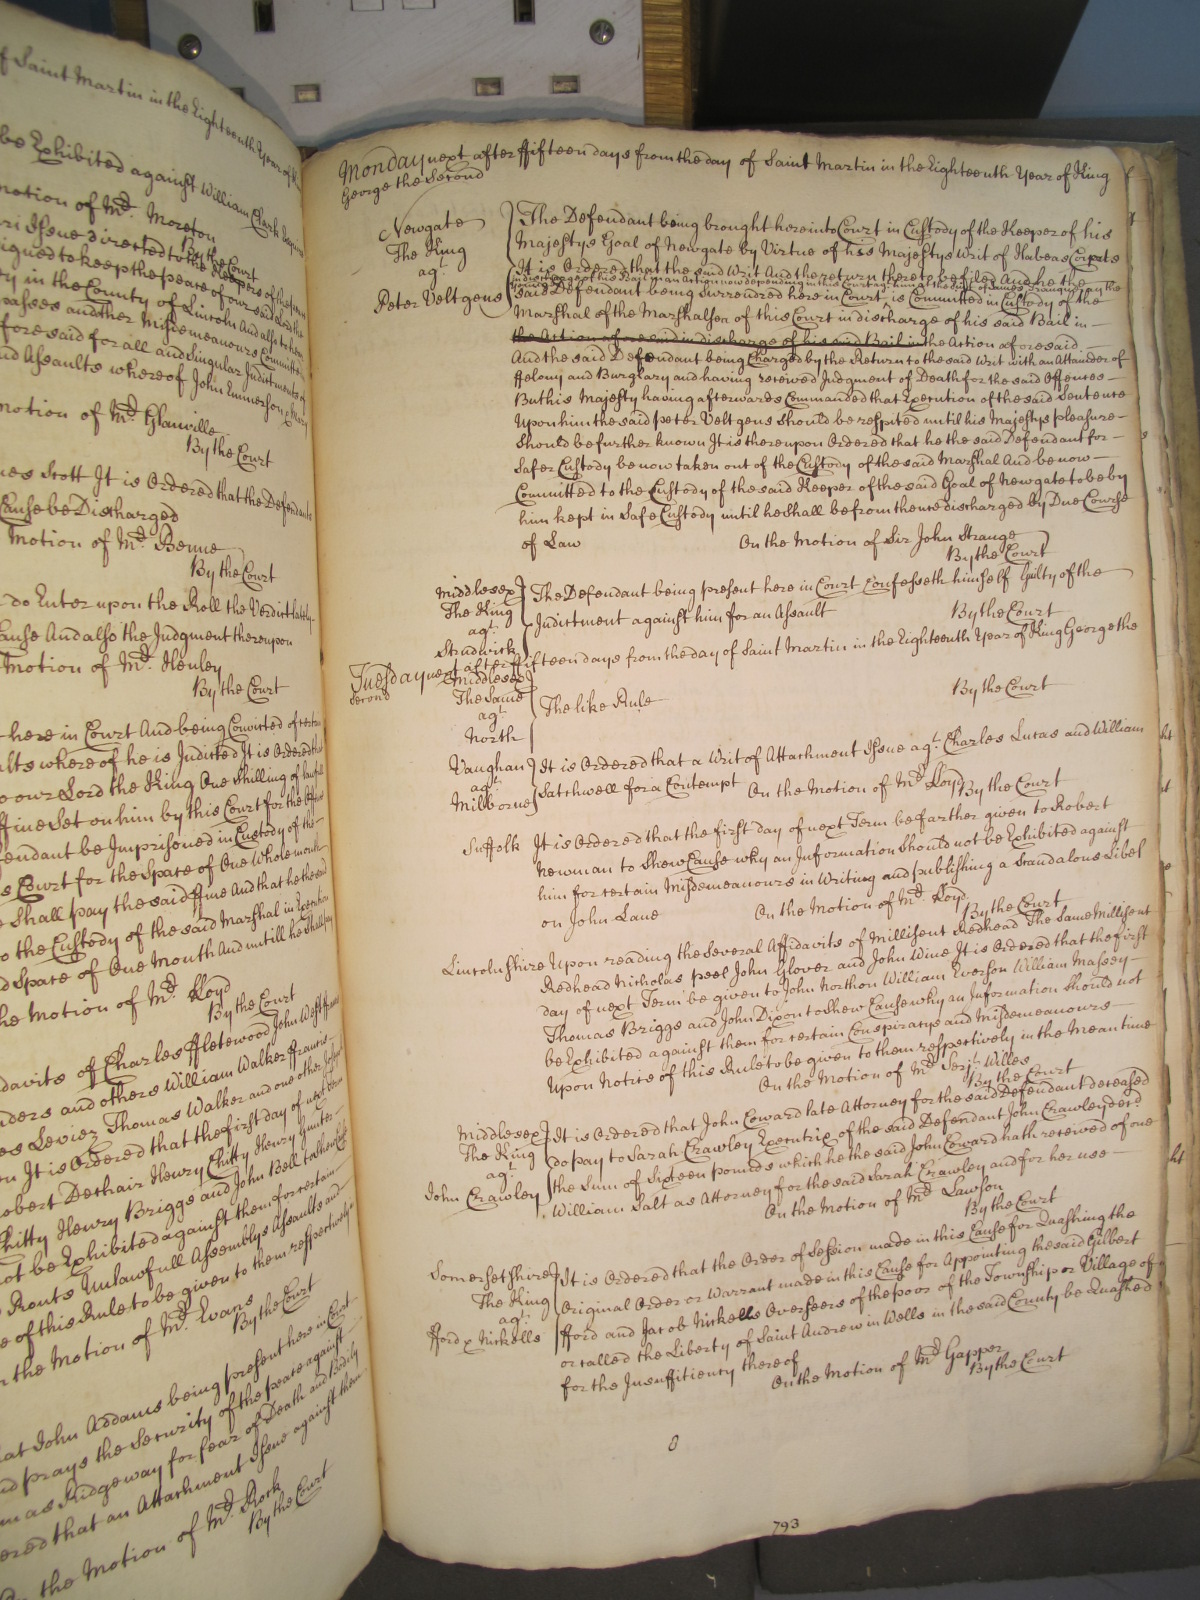 of Saint Martin in the Eighteenth Year of K
be Exhibited against William Clark
motion of Mr. Moreton
By the Court
ri Issue directed to the Keepers of the
signed to keep the peace of our said Lord the
ry in the County of Lincoln And also to
passes and other Misdemeanours Committed
fore said for all and Singular Indictments of
nd Assaults whereof John Emmerson
motion of Mr. Glanville
By the Court
mes Scott It is Ordered that the Defendants
Cause be Discharged
Motion of Mr. Benne
By the Court
do Enter upon the Roll the Verdict lately
Cause And also the Judgment thereupon
Motion of Mr. Henley
By the Court
here in Court And being Convicted of certain
lts whereof he is Indicted It is Ordered that
o our Lord the King One Shilling of lawfull
ffine Set on him by this Court for the Offence
fendant be Imprisoned in Custody of the
s Court for the Space of One Whole month
e Shall pay the said ffine And that he the said
o the Custody of the said Marshal in Execution
d Space of One Month And untill he Shall pay
he Motion of Mr. Lloyd
By the Court
davits of Charles ffleetewood John West
nders and others William Walker ffrancis
es Leviez Thomas Walker and one other
on It is Ordered that the first day of next
obert Dechair Henry Chitty Henry Gunter
Chitty Henry Briggs and John Bell to Shew
not be Exhibited against them for certain
Routs Unlawfull Assemblys Assaults and
e of this Rule to be given to them respectively
n the Motion of Mr. Evans
By the Court
at John Addams being present here in Court
nd prays the Security of the peace against
mas Ridgeway for fear of Death and Bodily
ered that an Attachment Issue against them
On the Motion of Mr. Rock
By the Court
Monday next after ffifteen days from the day of Saint Martin in the Eighteenth Year of King
George the Second
Newgate
The King
agt.
Peter Veltgens
The Defendant being brought here into Court in Custody of the Keeper of his
Majestys Goal of Newgate by Virtue of his Majestys Writ of Habeas Corpus
It is Ordered that the said Writ And the return thereto be filed And he the
said Defendant being Surrendred here in Court is Committed in Custody of the
Marshal of the Marshalsea of this Court in discharge of his said Bail in
the Action aforesaid in discharge of his said Bail in the Action aforesaid
And the said Defendant being Charged by the Return to the said Writ with an Attainder of
ffelony and Burglary and having received Judgment of Death for the said Offences
But his Majesty having afterwards Commanded that Execution of the said Sentence
Upon him the said Peter Veltgens should be respited until his Majestys pleasure
Should be further known It is thereupon Ordered that he the said Defendant for
Safer Custody be now taken out of the Custody of the said Marshal And be now
Committed to the Custody of the said Keeper of the said Goal of Newgate to be by
him kept in Safe Custody until he shall be from thence discharged by Due Course
of Law On the Motion of Sir John Strange
By the Court
Middlesex
The King
agt.
Studwick
The Defendant being present here in Court Confesseth himself Guilty of the
Indictment against him for an Assault By the Court
Tuesday next after ffifteen days from the day of Saint Martin in the Eighteenth Year of King George the
Second
Middlesex
The Same
agt.
North
The like Rule By the Court
Vaughan
agt.
Milborne
It is Ordered that a Writ of Attachment Issue agt. Charles Lucas and William
Satchwell for a Contempt On the Motion of Mr. Lloyd
By the Court
Suffolk It is Ordered that the first day of next Term be farther given to Robert
Newman to Shew Cause why an Information Should not be Exhibited against
him for certain Misdemeanours in Writing and publishing a Scandalous Libel
on John Lane On the Motion of Mr. Lloyd
By the Court
Lincolnshire Upon reading the Several Affidavits of Millisent Redhead The Same Millisent
Redhead Nicholas peel John Glover and John Wine It is Ordered that the first
day of next Term be given to John Northon William Everson William Massey
Thomas Briggs and John Dixon to Shew Cause why an Information Should not
be Exhibited against them for certain Conspiracys and Misdemeanours
Upon Notice of this Rule to be given to them respectively in the Mean time
On the Motion of Mr. Serjt. Willes
By the Court
Middlesex
The King
agt.
John Crawley
It is Ordered that John Coward late Attorney for the said Defendant deceased
do pay to Sarah Crawley Executrix of the said Defendant John Crawley decd.
the Sum of Sixteen pounds which he the said John Coward hath received of one
William Salt as Attorney for the said Sarah Crawley and for her use
On the Motion of Mr. Lawson
By the Court
Somersetshire
The King
agt.
fford & Nickells
It is Ordered that the Order of Session made in this Cause for Quashing the
Original Order or Warrant made in this Cause for Appointing the said Gilbert
fford and Jacob Nickells Overseers of the poor of the Township or Village of
or called the Liberty of Saint Andrew in Wells in the said County be Quashed
for the Insufficiency thereof
On the Motion of Mr. Gapper
By the Court
793